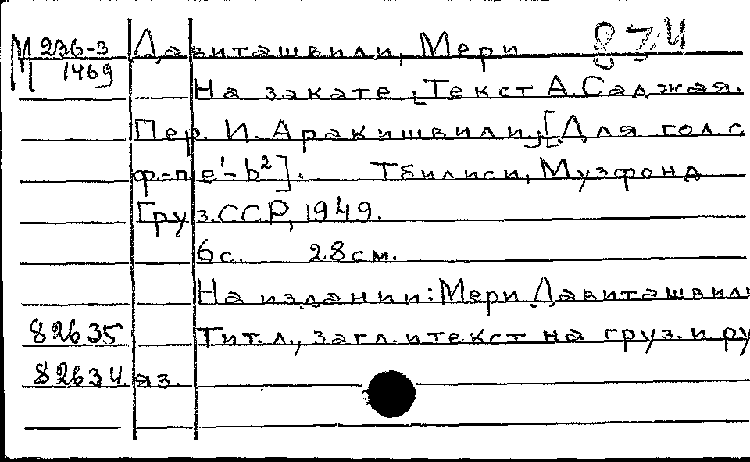 М 236-3 Давиташвили, Мери 874
1469
На закате. [Текст А. Саджая.
Пер. И. Аракишвили]. [Для гол. с
ф-п e'-b²]. Тбилиси, Музфонд
Груз.ССР, 1949.
6 с. 28 см.
На издании: Мери Давиташвили
82635 Тит.л., загл. и текст на груз. и ру
82634 яз.